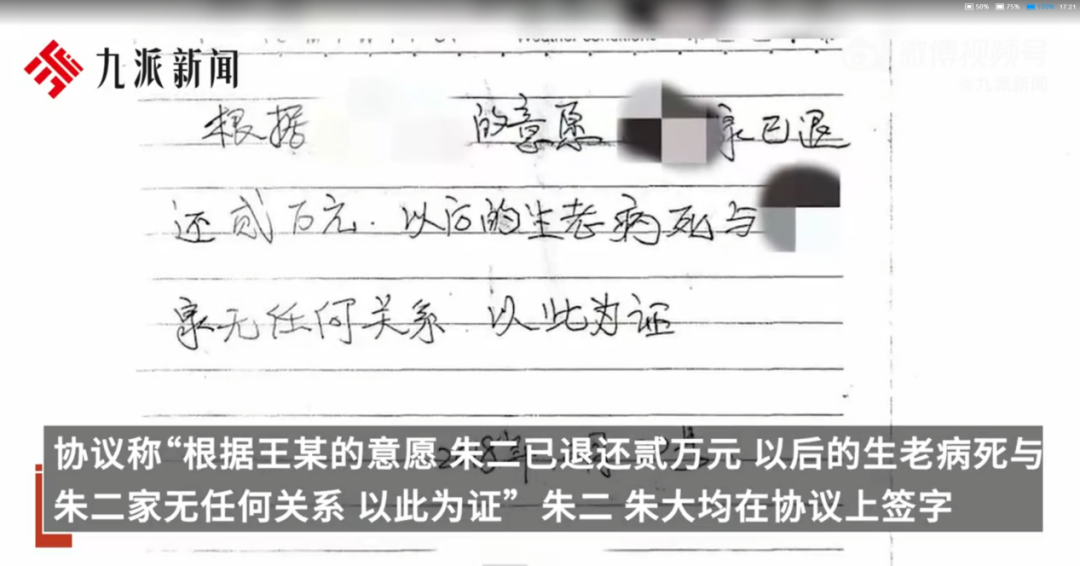 50% 75% 100% 17:21
九派新闻
微博视频号
@九派新闻
Weather Conditions
根据 的意愿 家已退
还贰万元.以后的生老病死与
家无任何关系.以此为证
协议称“根据王某的意愿 朱二已退还贰万元 以后的生老病死与
朱二家无任何关系 以此为证” 朱二 朱大均在协议上签字